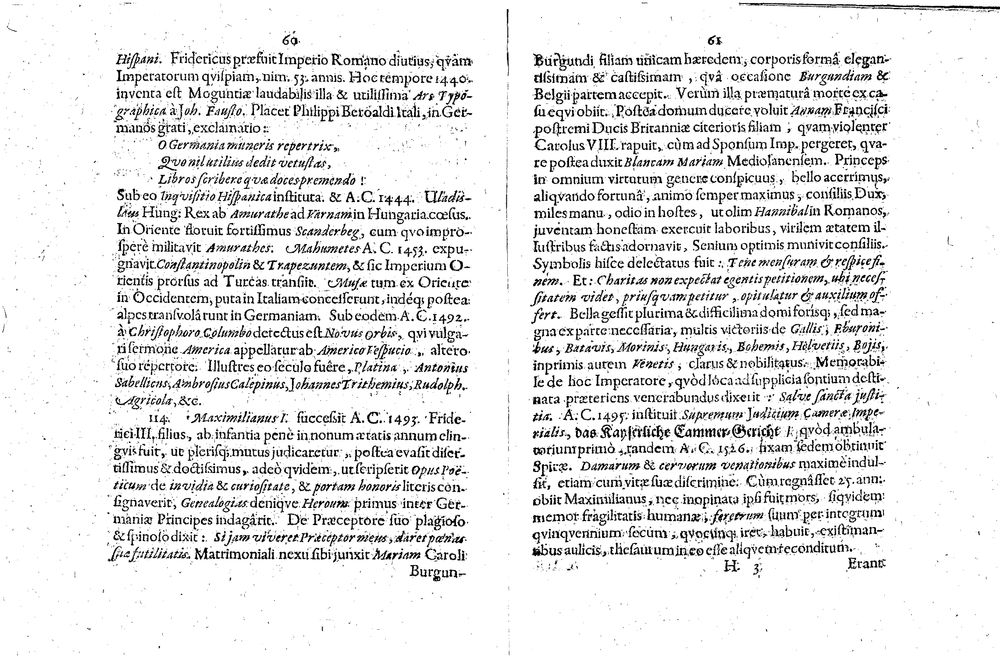 60
Hispani. Fridericus præfuit Imperio Romano diutius, qvàm
Imperatorum qvispiam, nim. 53. annis. Hoc tempore 1440.
inventa est Moguntiæ laudabilis illa & utilissima Ars Typo-
graphica à Joh. Fausto. Placet Philippi Beroaldi Itali, in Ger-
manos grati, exclamatio:
O Germania muneris repertrix,
Quo nil utilius dedit vetustas,
Libros scribere qvæ doces premendo!
Sub eo Inqvisitio Hispanica instituta. & A. C. 1444. Uladis-
laus Hung: Rex ab Amurathe ad Varnam in Hungaria cœsus.
In Oriente floruit fortissimus Scanderbeg, cum qvo impro-
sperè militavit Amurathes. Mahumetes A. C. 1453. expu-
gnavit Constantinopolin & Trapezuntem, & sic Imperium O-
rientis prorsus ad Turcas transiit. Musæ tum ex Oriente
in Occidentem, puta in Italiam concesserunt, indéq; postea
alpes transvolârunt in Germaniam. Sub eodem A. C. 1492.
à Christophoro Columbo detectus est Novus Orbis, qvi vulga-
ri sermone America appellatur ab Americo Vespucio, altero
suo repertore. Illustres eo seculo fuêre, Platina, Antonius
Sabellicus, Ambrosius Calepinus, Johannes Trithemius, Rudolph.
Agricola, &c.
114. Maximilianus I. successit A. C. 1493. Fride-
rici III. filius, ab infantia penè in nonum ætatis annum elin-
gvis fuit, ut plerisq; mutus judicaretur, postea evasit diser-
tissimus & doctissimus, adeò qvidem, ut scripserit Opus Poë-
ticum de invidia & curiositate, & portam honoris literis con-
signaverit, Genealogias deniqve Heroum primus inter Ger-
maniæ Principes indagârit. De Præceptore suo plagioso
& spinoso dixit: Si jam viveret Præceptor meus, daret pœnas
suæ futilitatis. Matrimoniali nexu sibi junxit Mariam Caroli
Burgun-
61
Burgundi filiam unicam hæredem, corporis formâ elegan-
tissimam & castissimam, qvâ occasione Burgundiam &
Belgii partem accepit. Verùm illa præmaturâ morte ex ca-
su eqvi obiit. Postea domum ducere voluit Annam Francisci
postremi Ducis Britanniæ citerioris filiam, qvam violenter
Carolus VIII. rapuit, cùm ad Sponsum Imp. pergeret, qva-
re postea duxit Blancam Mariam Mediolanensem. Princeps
in omnium virtutum genere conspicuus, bello acerrimus,
aliqvando fortunâ, animo semper maximus, consiliis Dux,
miles manu, odio in hostes, ut olim Hannibal in Romanos,
juventam honestam exercuit laboribus, virilem ætatem il-
lustribus factis adornavit, Senium optimis munivit consiliis.
Symbolis hisce delectatus fuit: Tene mensuram & respice fi-
nem. Et: Charitas non expectat egentis petitionem, ubi neces-
sitatem videt, priusqvam petitur, opitulatur & auxilium of-
fert. Bella gessit plurima & difficilima domi forisq;, sed ma-
gna ex parte necessaria, multis victoriis de Gallis, Eburoni-
bus, Batavis, Morinis, Hungaris, Bohemis, Helvetiis, Bojis,
inprimis autem Venetis, clarus & nobilitatus. Memorabi-
le de hoc Imperatore, qvòd loca ad supplicia sontium desti-
nata præteriens venerabundus dixerit: Salve sancta justi-
tia. A. C. 1495. instituit Supremum Judicium Cameræ Impe-
rialis, das Kayserliche Cammer-Gericht, qvod ambula-
torium primò, tandem A. C. 1526. fixam sedem obtinuit
Spiræ. Damarum & cervorum venationibus maximè indul-
sit, etiam cum vitæ suæ discrimine. Cùm regnâsset 25. ann.
obiit Maximilianus, nec inopinata ipsi fuit mors, siqvidem
memor fragilitatis humanæ, feretrum suum per integrum
qvinqvennium secum, qvocunqve iret, habuit, existiman-
tibus aulicis, thesaurum in eo esse aliqvem reconditum.
H 3 Erant